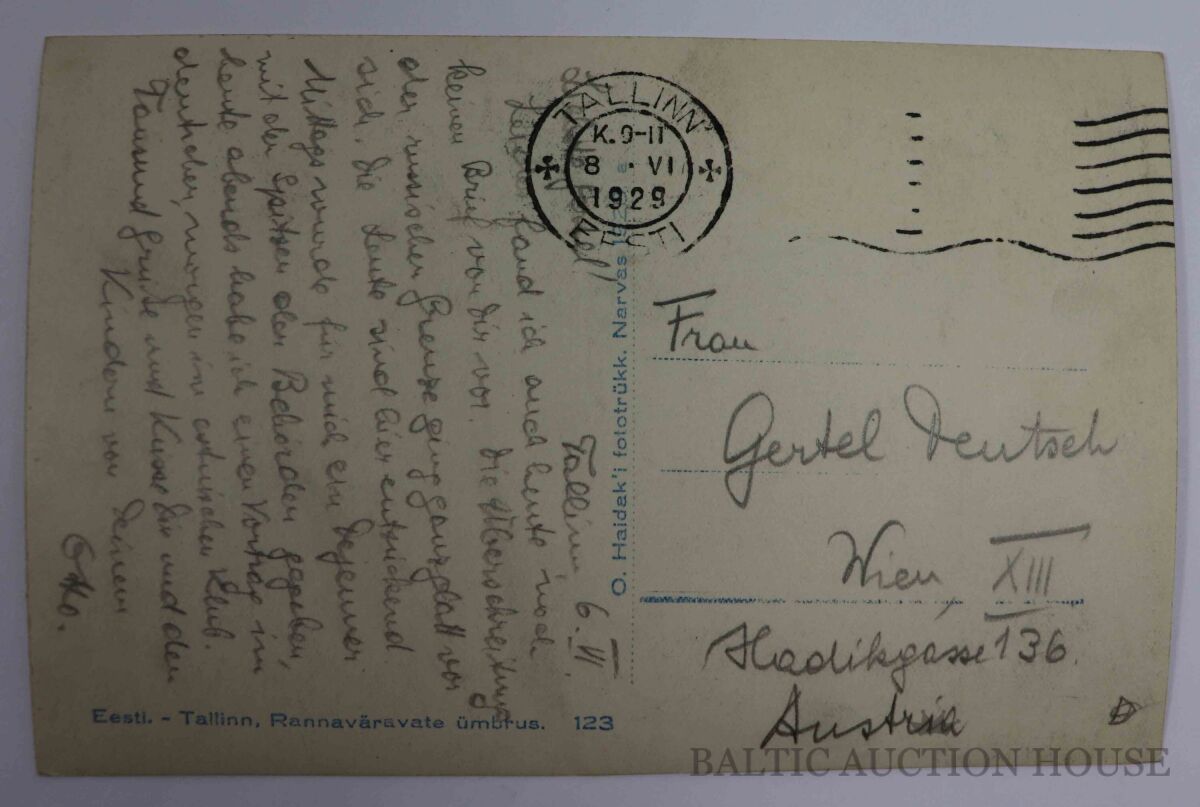 Tallinn, 6. VI.
Leider fand ich auch heute noch
keinen Brief von dir vor. Die Überschreitung
der russischen Grenze ging ganz glatt vor
sich. Die Leute sind hier entzückend.
Mittags wurde für mich ein Dejeuner
mit den Spitzen der Behörden gegeben,
heute abends habe ich einen Vortrag im
deutschen, morgen im estnischen Klub.
Tausend Grüße und Küsse dir und den
Kindern von deinem
Otto.
TALLINN
K. 9-11
8 · VI
1929
EESTI
O. Haidak'i fototrükk. Narvas
Frau
Gertel Deutsch
Wien, XIII
Hadikgasse 136.
Austria
Eesti. - Tallinn, Rannaväravate ümbrus. 123
BALTIC AUCTION HOUSE